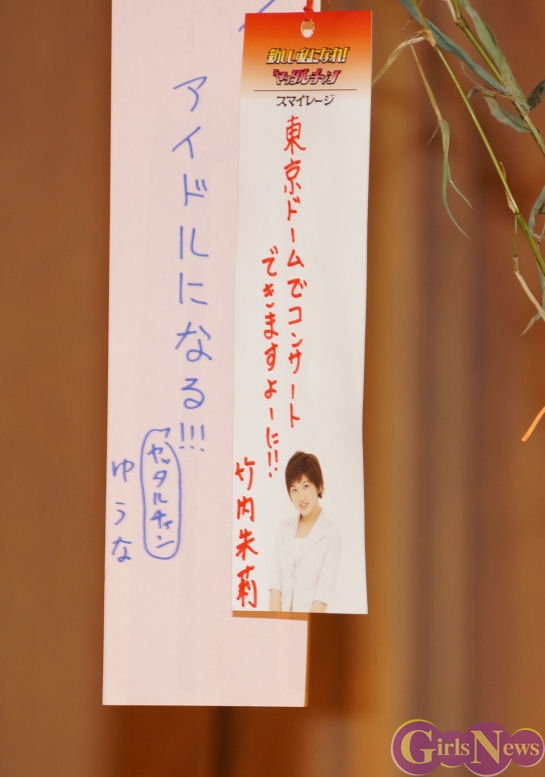 新しい私になれ!
ヤッタルチャン
スマイレージ
東京ドームでコンサート
できますよーに!!
竹内朱莉
アイドルになる!!!
ヤッタルチャン
ゆうな
GirlsNews